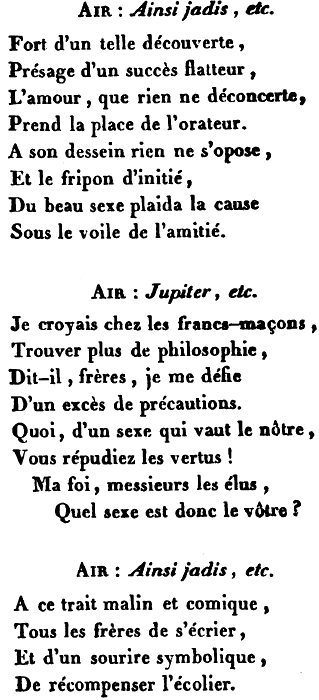 AIR : Ainsi jadis, etc.
Fort d'un telle découverte,
Présage d'un succès flatteur,
L'amour, que rien ne déconcerte,
Prend la place de l'orateur.
A son dessein rien ne s'opose,
Et le fripon d'initié,
Du beau sexe plaida la cause
Sous le voile de l'amitié.
AIR : Jupiter, etc.
Je croyais chez les francs-maçons,
Trouver plus de philosophie,
Dit-il, frères, je me défie
D'un excès de précautions.
Quoi, d'un sexe qui vaut le nôtre,
Vous répudiez les vertus !
Ma foi, messieurs les élus,
Quel sexe est donc le vôtre ?
AIR : Ainsi jadis, etc.
A ce trait malin et comique,
Tous les frères de s'écrier,
Et d'un sourire symbolique,
De récompenser l'écolier.